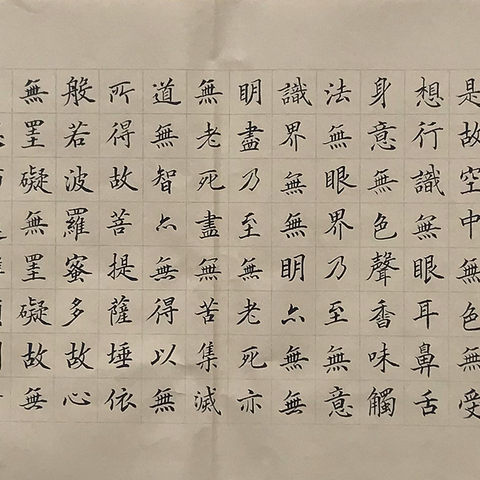 是故空中無色無受
想行識無眼耳鼻舌
身意無色聲香味觸
法無眼界乃至無意
識界無無明亦無無
明盡乃至無老死亦
無老死盡無苦集滅
道無智亦無得以無
所得故菩提薩埵依
般若波羅蜜多故心
無罣礙無罣礙故無